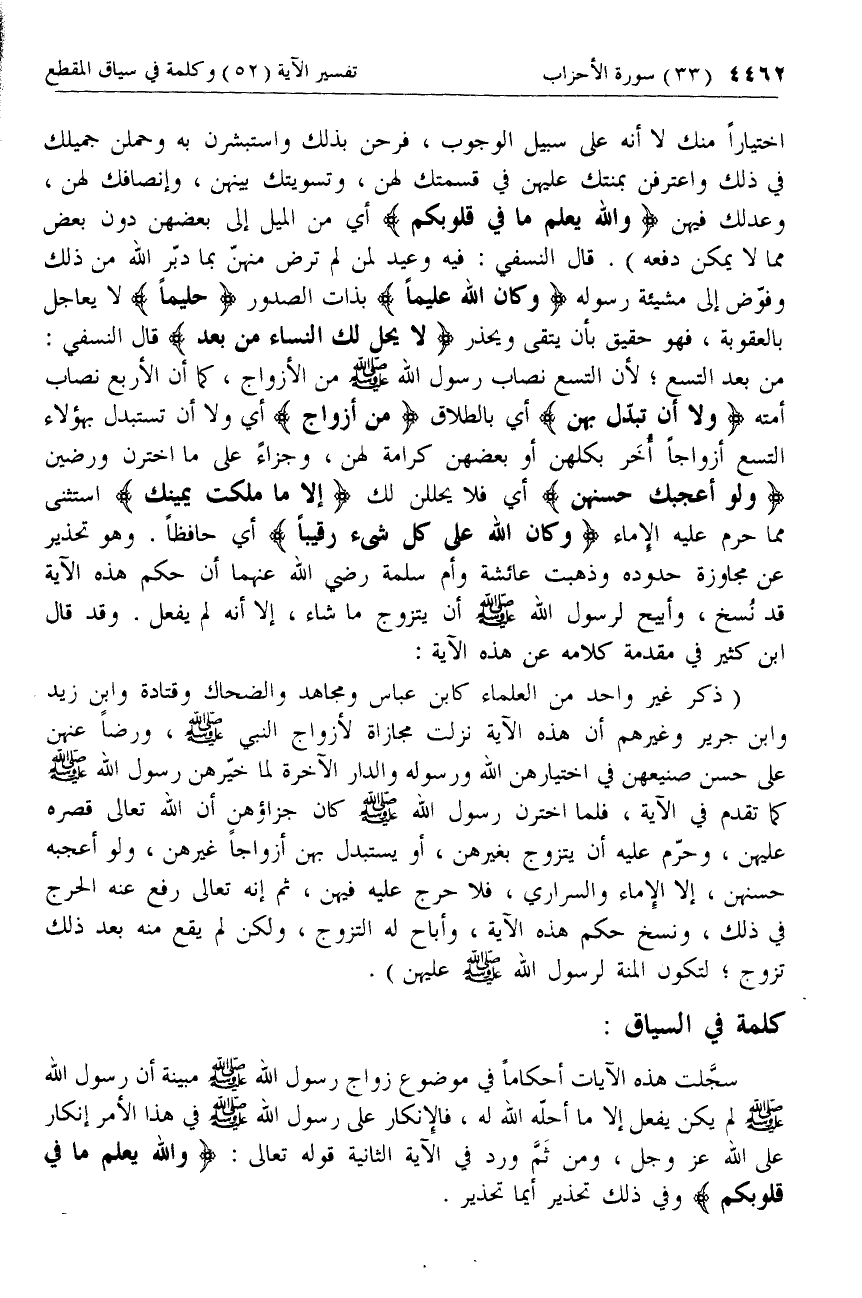 ٤٤٦٢ (٣٣) سورة الأحزاب تفسير الآية (٥٢) وكلمة في سياق المقطع
اختياراً منك لا أنه على سبيل الوجوب ، فرحن بذلك واستبشرن به وحملن جميلك
في ذلك واعترفن بمنتك عليهن في قسمتك لهن ، وتسويتك بينهن ، وإنصافك لهن ،
وعدلك فيهن ﴿ والله يعلم ما في قلوبكم ﴾ أي من الميل إلى بعضهن دون بعض
مما لا يمكن دفعه ) . قال النسفي : فيه وعيد لمن لم ترض منهنّ بما دبّر الله من ذلك
وفوّض إلى مشيئة رسوله ﴿ وكان الله عليماً ﴾ بذات الصدور ﴿ حليماً ﴾ لا يعاجل
بالعقوبة ، فهو حقيق بأن يتقى ويحذر ﴿ لا يحل لك النساء من بعد ﴾ قال النسفي :
من بعد التسع ؛ لأن التسع نصاب رسول الله ﷺ من الأزواج ، كما أن الأربع نصاب
أمته ﴿ ولا أن تبدّل بهن ﴾ أي بالطلاق ﴿ من أزواج ﴾ أي ولا أن تستبدل بهؤلاء
التسع أزواجاً أُخَر بكلهن أو بعضهن كرامة لهن ، وجزاءً على ما اخترن ورضين
﴿ ولو أعجبك حسنهن ﴾ أي فلا يحللن لك ﴿ إلا ما ملكت يمينك ﴾ استثنى
مما حرم عليه الإماء ﴿ وكان الله على كل شيء رقيباً ﴾ أي حافظاً . وهو تحذير
عن مجاوزة حدوده وذهبت عائشة وأم سلمة رضي الله عنهما أن حكم هذه الآية
قد نُسخ ، وأبيح لرسول الله ﷺ أن يتزوج ما شاء ، إلا أنه لم يفعل . وقد قال
ابن كثير في مقدمة كلامه عن هذه الآية :
( ذكر غير واحد من العلماء كابن عباس ومجاهد والضحاك وقتادة وابن زيد
وابن جرير وغيرهم أن هذه الآية نزلت مجازاة لأزواج النبي ﷺ ، ورضاً عنهن
على حسن صنيعهن في اختيارهن الله ورسوله والدار الآخرة لما خيّرهن رسول الله ﷺ
كما تقدم في الآية ، فلما اخترن رسول الله ﷺ كان جزاؤهن أن الله تعالى قصره
عليهن ، وحرّم عليه أن يتزوج بغيرهن ، أو يستبدل بهن أزواجاً غيرهن ، ولو أعجبه
حسنهن ، إلا الإماء والسراري ، فلا حرج عليه فيهن ، ثم إنه تعالى رفع عنه الحرج
في ذلك ، ونسخ حكم هذه الآية ، وأباح له التزوج ، ولكن لم يقع منه بعد ذلك
تزوج ؛ لتكون المنة لرسول الله ﷺ عليهن ) .
كلمة في السياق :
سجَّلت هذه الآيات أحكاماً في موضوع زواج رسول الله ﷺ مبينة أن رسول الله
ﷺ لم يكن يفعل إلا ما أحلّه الله له ، فالإنكار على رسول الله ﷺ في هذا الأمر إنكار
على الله عز وجل ، ومن ثَمَّ ورد في الآية الثانية قوله تعالى : ﴿ والله يعلم ما في
قلوبكم ﴾ وفي ذلك تحذير أيما تحذير .